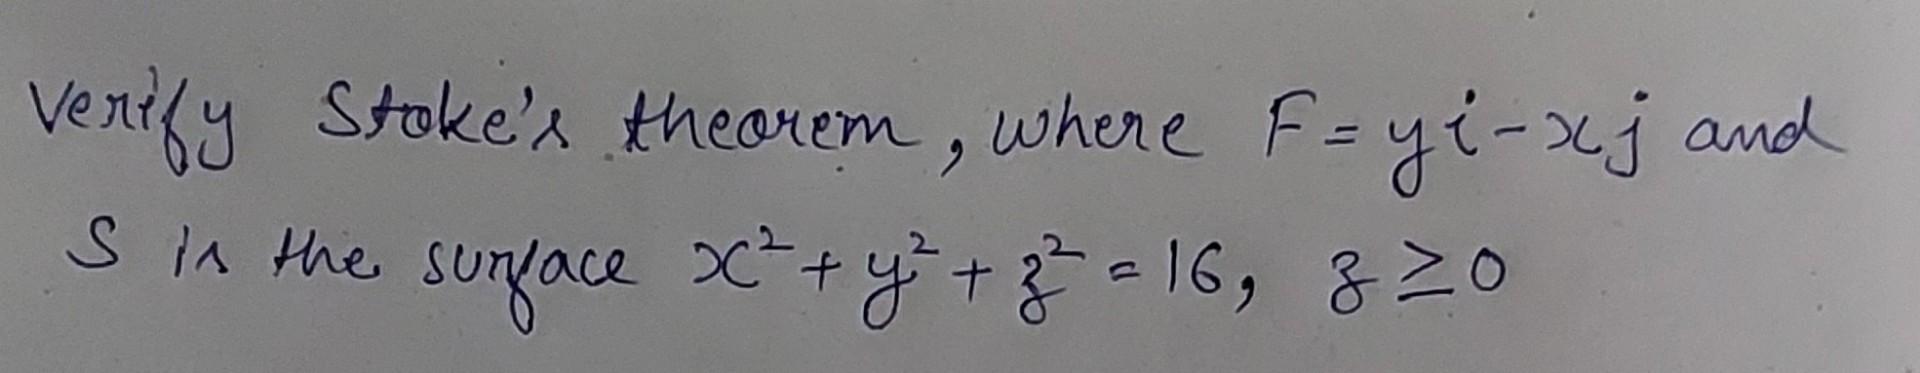 Verify Stoke's theorem, where F = yi - xj and
S is the surface x² + y² + z² = 16, z ≥ 0